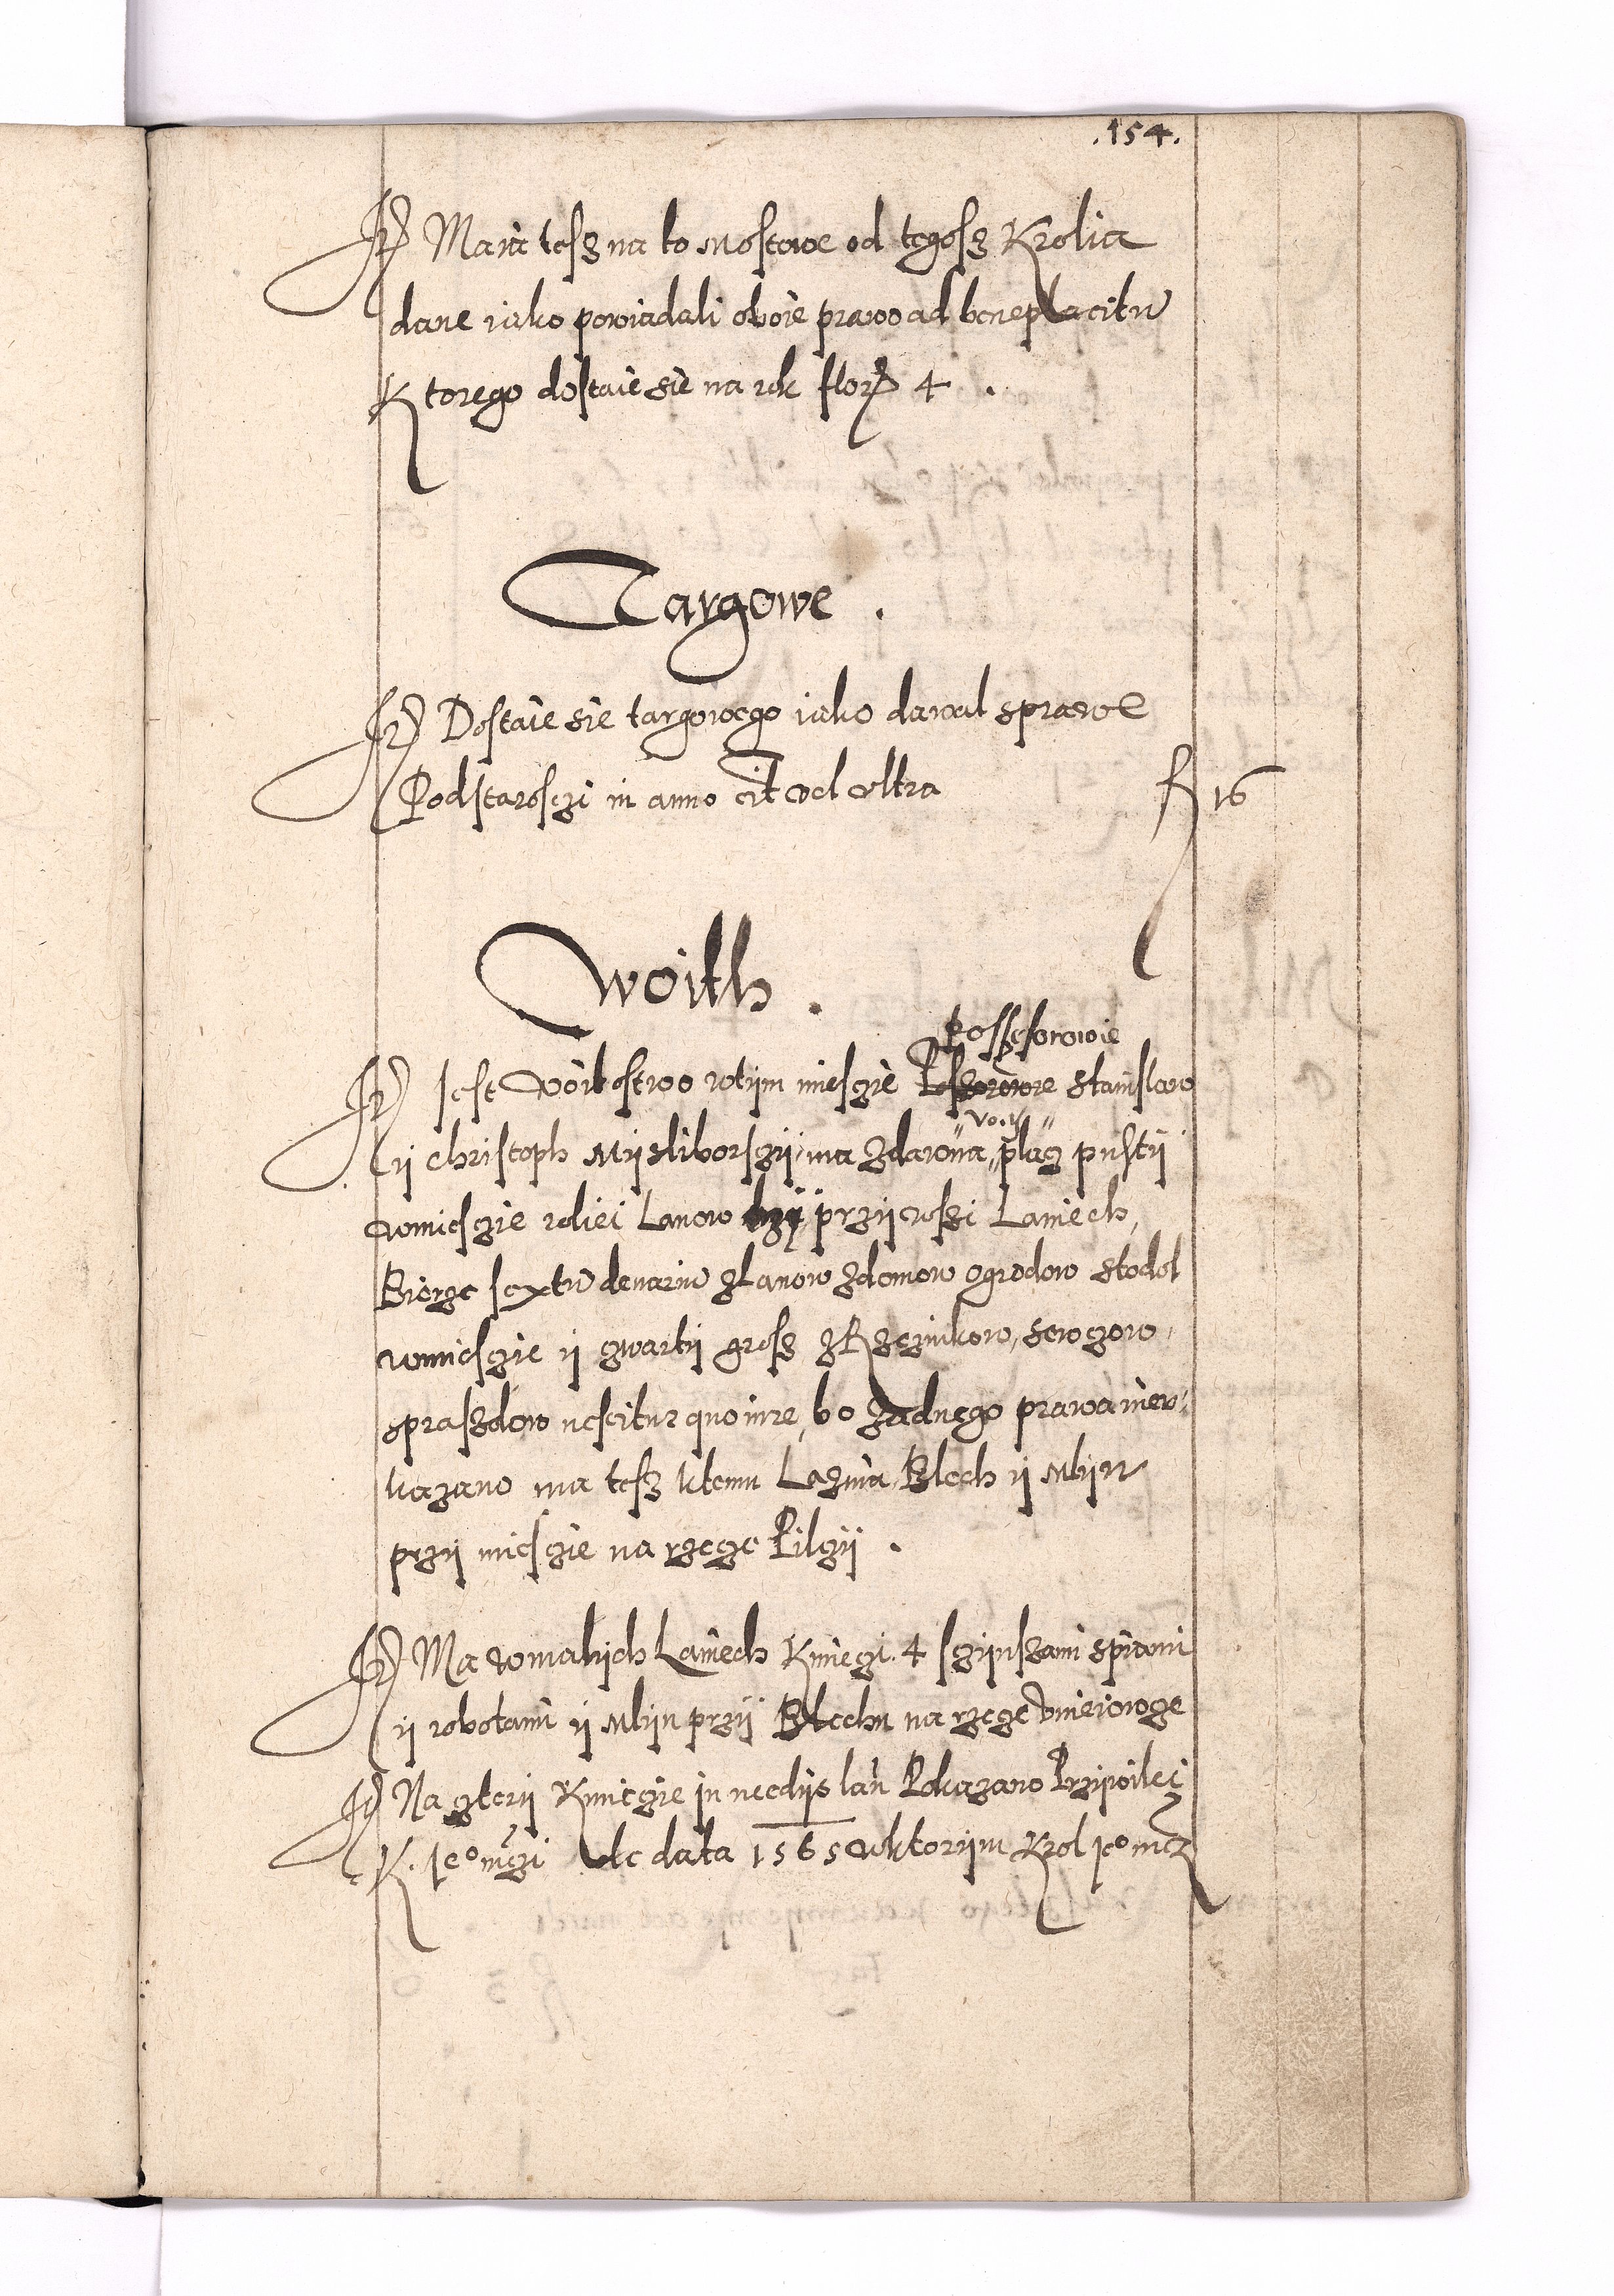 .154.
It Maia tesz na to Mostowe od tegosz Krolia
dane iako powiadali oboie prawo ad beneplacitu
Ktorego dostaie sie na rok flor 4 .
Targowe .
It Dostaie sie targowego iako dawal sprawe
Podstarosczi in anno cit vel vltra fl 16
Woith .
Possesorowie
It Jest Woitostwo wtym miesczie Stanislaw
voit
y Christoph Mysliborszy, ma zdawna placz pusty
wmiesczie roliei Lanow przy wossi Laniech,
Bierze sextu denariu zLanow zdomow ogrodow stodol
wmiesczie y czwarty grosz zRzeznikow, sewczow,
spraszdow nescitur quo iure, bo zadnego prawa niew
kazano ma tesz ktemu Laznia, Blech y Mlyn
przy miesczie na rzecze Pilczy .
It Ma wmalych Laniech Kmieczi 4 sczynszami spiwni
y robotami y Mlyn przy Blechu na rzecze
It Na cztery Kmiecie in necdys lan Pokazano Przywilei
K. Jeo mczi de data 1565 wktorym Krol Jeo mcz